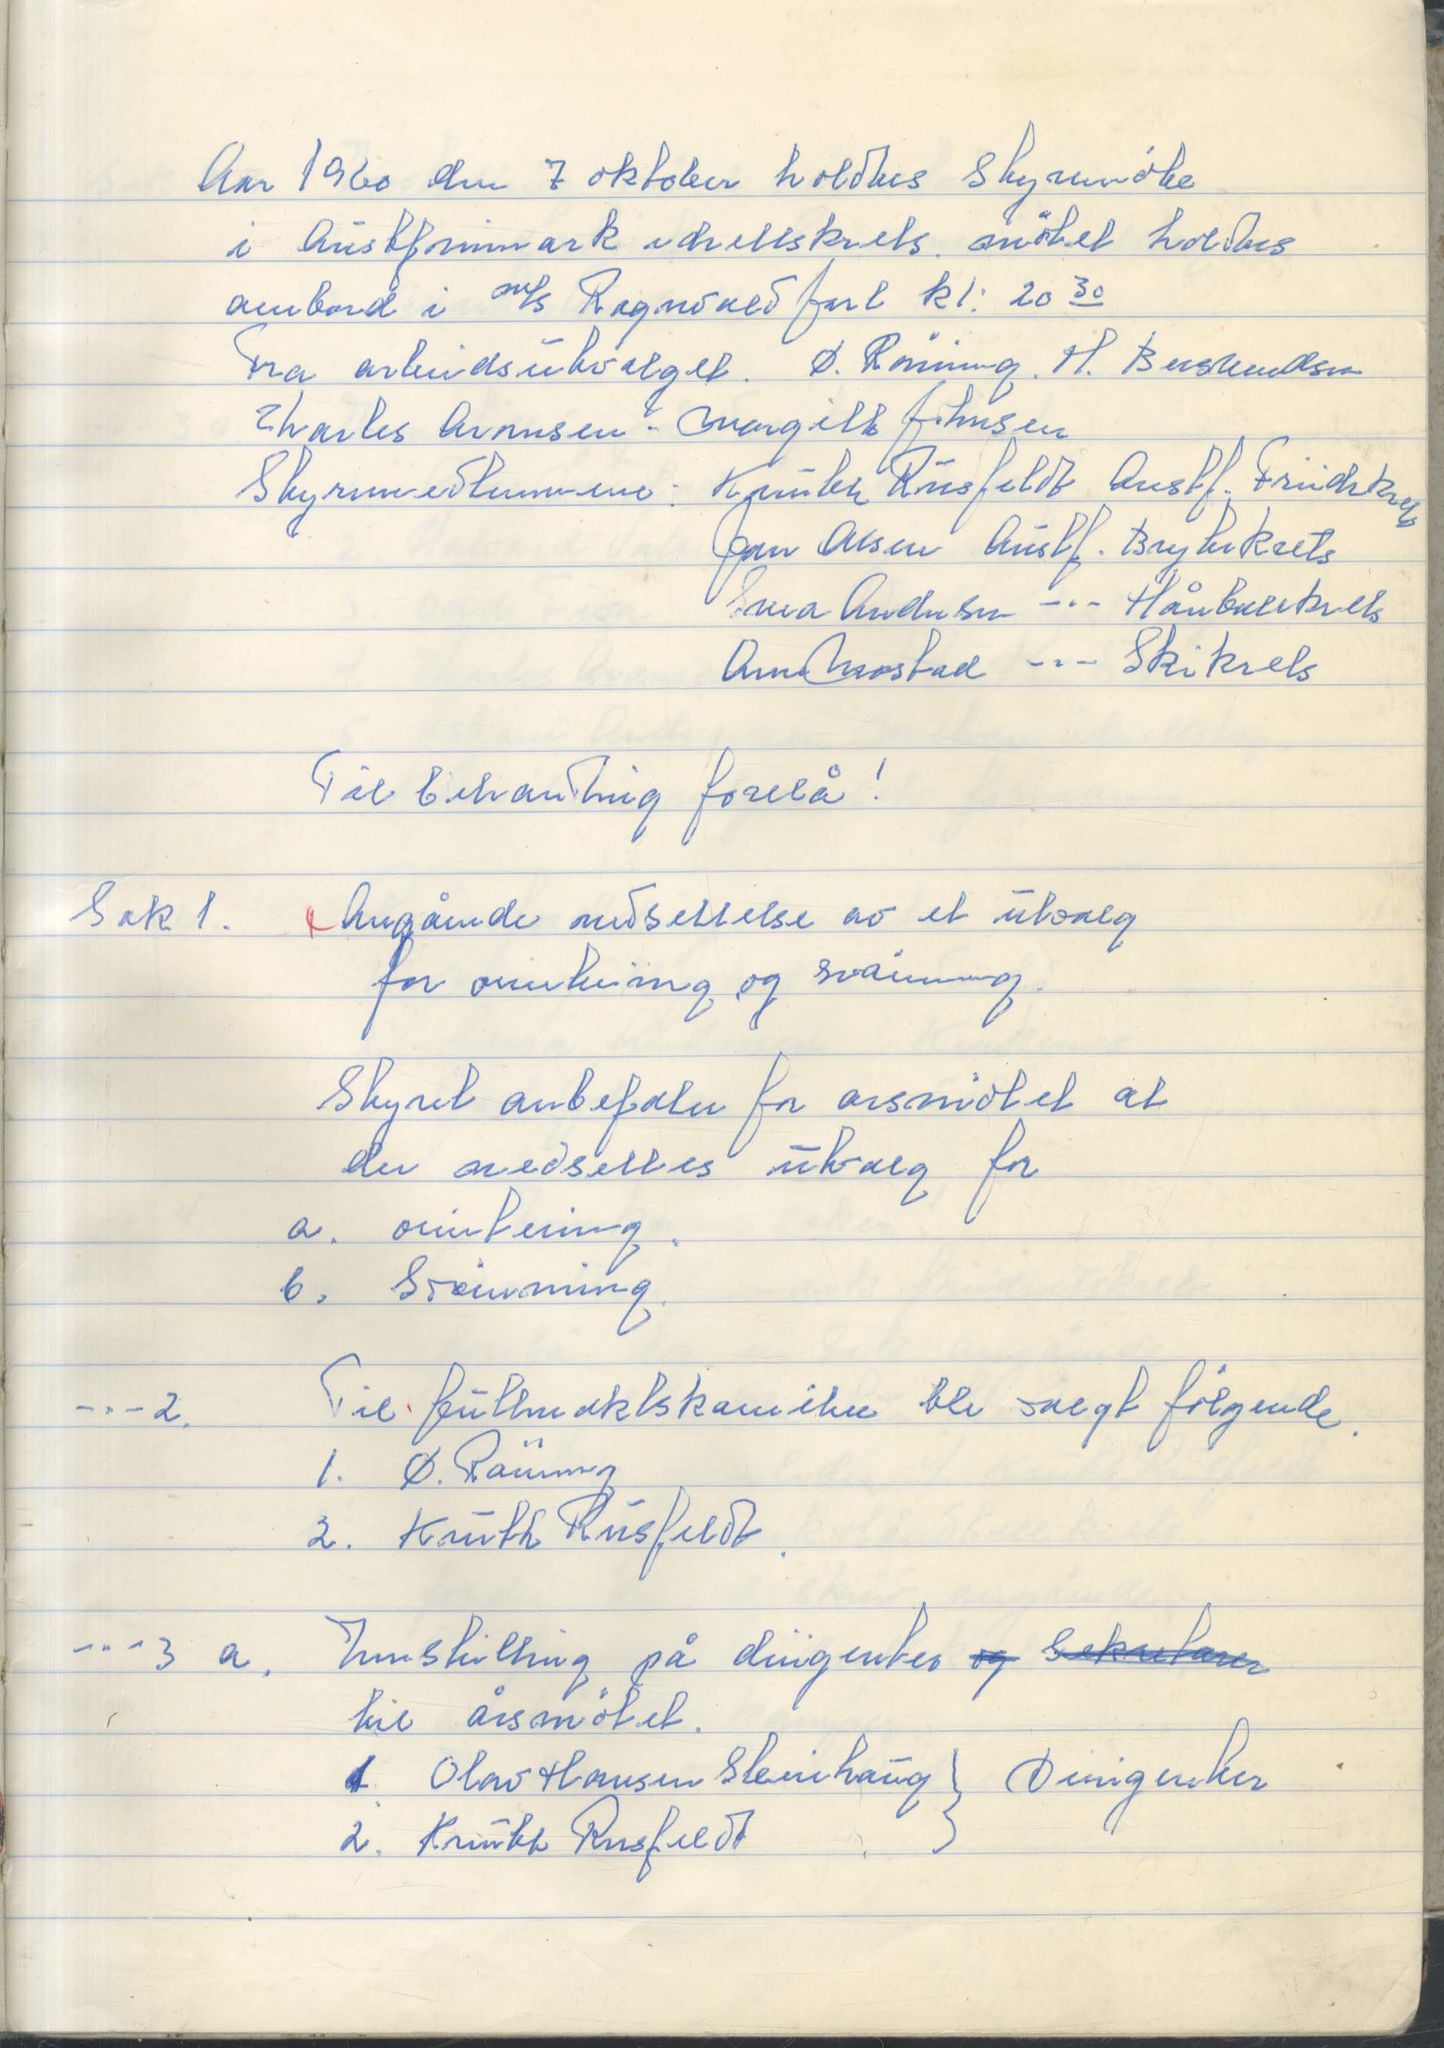 Aar 1960 den 7 oktober holdtes Styremöte
i Austfinnmark idrettskrets. mötet holdtes
ombord i m/s Ragnvald Jarl kl: 20 30
Fra arbeidsutvalget. Ø. Röning. H.
Charles Aronsen - Margitt Johnsen
Styremedlemmene: Knuth Rusfeldt Austf. Friidrkrets
Jan Olsen Austf. Brytekrets
Svea Andersen -"- Håndballkrets
Arne Mostad -"- Skikrets
Til behandling forelå!
Sak 1. Angående nedsettelse av et utvalg
for orintering og svömming.
Styret anbefaler for årsmötet at
der nedsettes utvalg for
a. orintering.
b. Svömming.
-"- 2. Til fullmaktskomiteen ble valgt fölgende.
1. Ø. Röning
2. Knuth Rusfeldt.
-"- 3 a. Innstilling på dirigenter og Sekretærer
til årsmötet.
1. Olav Hansen Steinhaug } Dirigenter
2. Knuth Rusfeldt